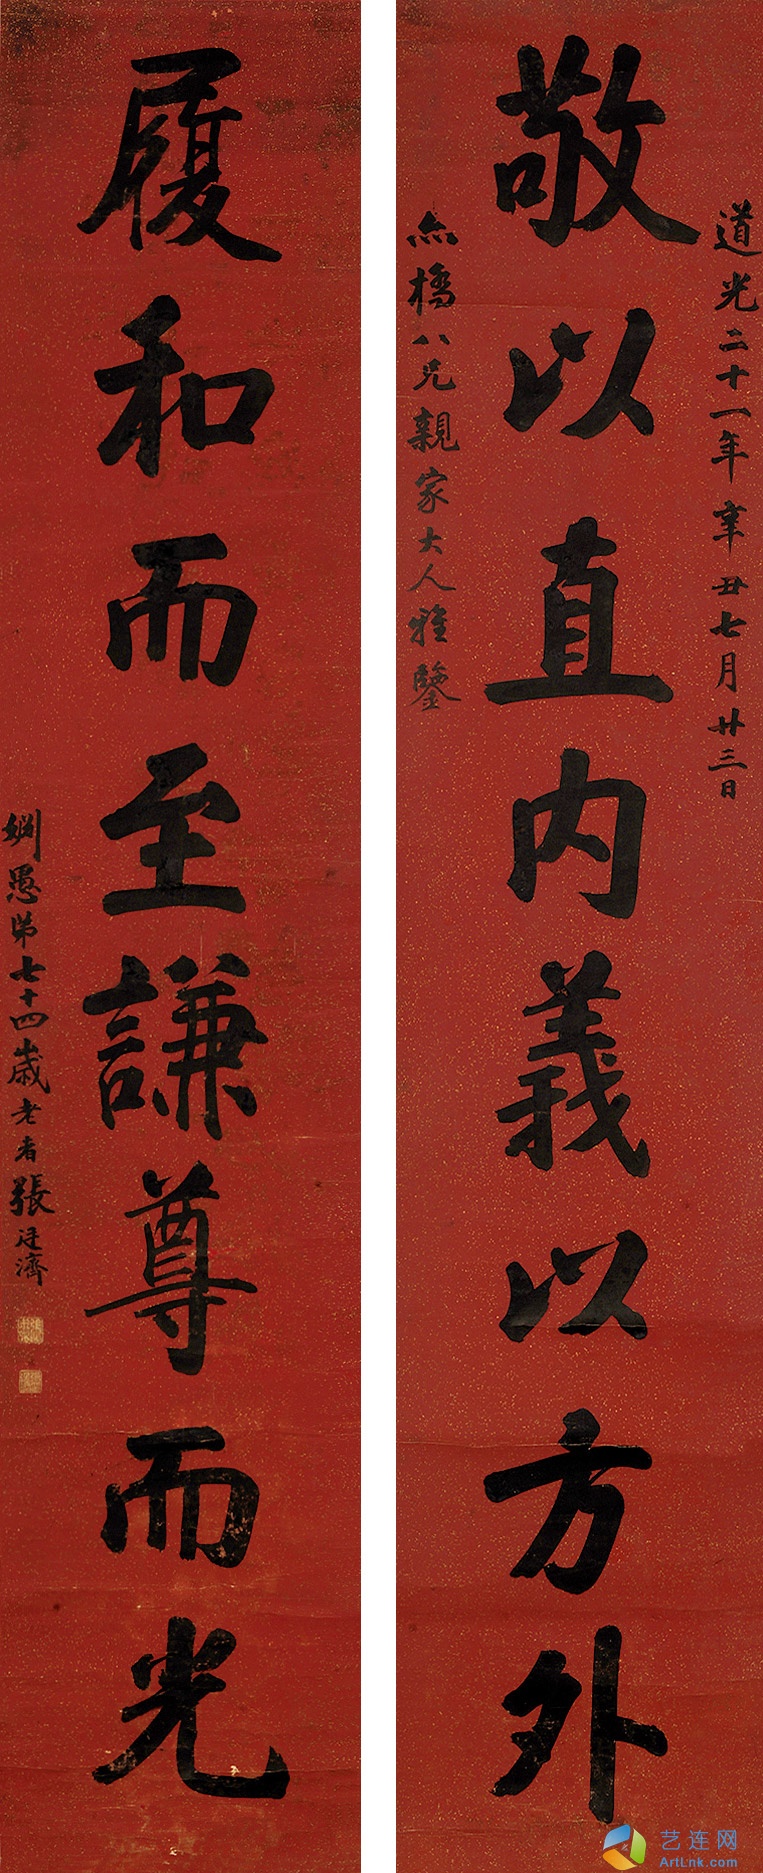 道光二十一年辛丑七月廿三日
敬以直内義以方外
橋八兄親家大人雅鑒
履和而至謙尊而光
姻愚弟七十四歲老者張廷濟
艺连网
ArtLnk.com